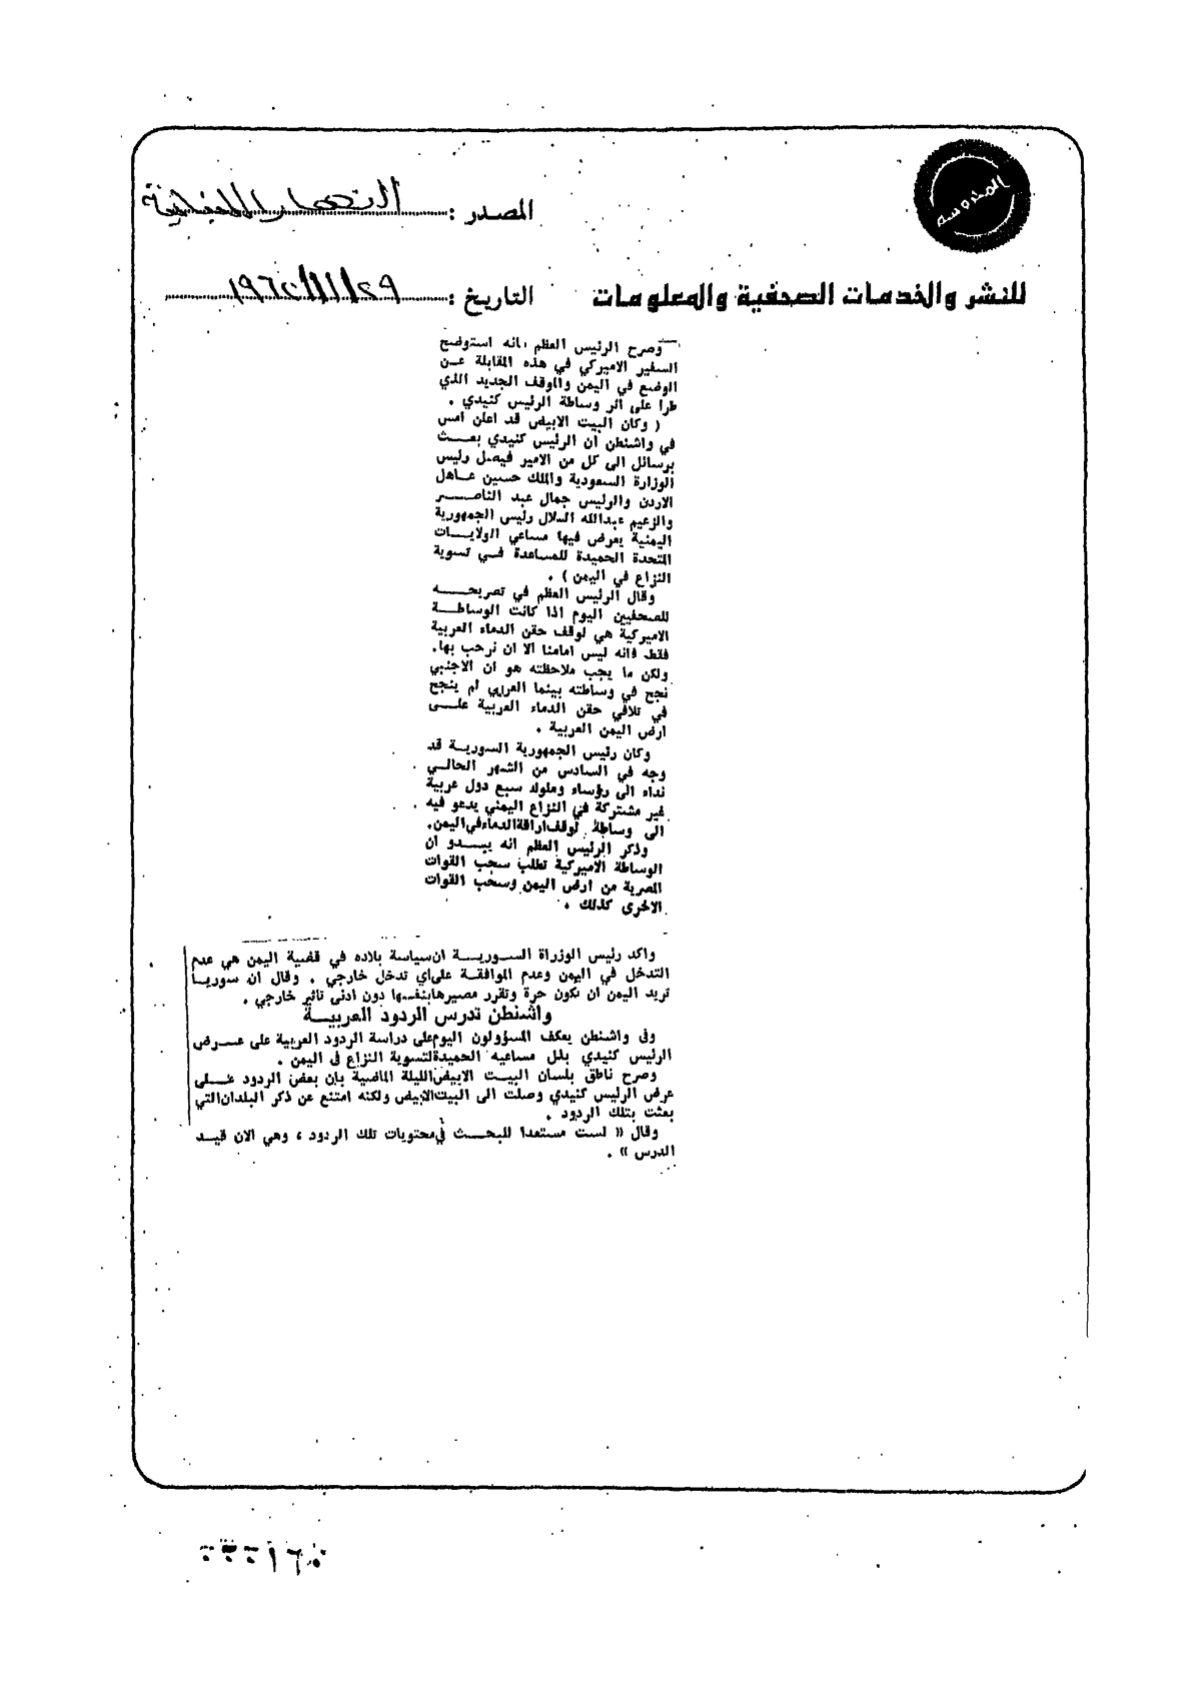 المحروسة
المصدر : النهار اللبنانية
للنشر والخدمات الصحفية والمعلومات
التاريخ : ٢٩/١١/١٩٦٢
وصرح الرئيس العظم انه استوضح
السفير الاميركي في هذه المقابلة عـن
الوضع في اليمن والموقف الجديد الذي
طرأ على اثر وساطة الرئيس كنيدي .
( وكان البيت الابيض قد اعلن امس
في واشنطن ان الرئيس كنيدي بعـــث
برسائل الى كل من الامير فيصل رئيس
الوزارة السعودية والملك حسين عـاهل
الاردن والرئيس جمال عبد الناصـــــر
والزعيم عبدالله السلال رئيس الجمهورية
اليمنية يعرض فيها مساعي الولايـــات
المتحدة الحميدة للمساعدة فــي تسوية
النزاع في اليمن ) .
وقال الرئيس العظم في تصريحـــــه
للصحفيين اليوم اذا كانت الوساطـــة
الاميركية هي لوقف حقن الدماء العربية
فقط فانه ليس امامنا الا ان نرحب بها.
ولكن ما يجب ملاحظته هو ان الاجنبي
نجح في وساطته بينما العربي لم ينجح
في تلافي حقن الدماء العربية علـــى
ارض اليمن العربية .
وكان رئيس الجمهورية السوريـة قد
وجه في السادس من الشهر الحالــي
نداء الى رؤساء وملوك سبع دول عربية
غير مشتركة في النزاع اليمني يدعو فيه
الى وساطة لوقف اراقة الدماء في اليمن.
وذكر الرئيس العظم انه يبـــدو ان
الوساطة الاميركية تطلب سحب القوات
المصرية من ارض اليمن وسحب القوات
الاخرى كذلك .
واكد رئيس الوزراة السـوريـــة ان سياسة بلاده في قضية اليمن هي عدم
التدخل في اليمن وعدم الموافقـة على اي تدخل خارجي . وقال ان سوريـا
تريد اليمن ان تكون حرة وتقرر مصيرها بنفسها دون ادنى تاثير خارجي .
واشنطن تدرس الردود العربيـــة
وفى واشنطن يعكف المسؤولون اليوم على دراسة الردود العربية على عـــرض
الرئيس كنيدي بذل مساعيه الحميدة لتسوية النزاع فى اليمن .
وصرح ناطق بلسان البيــت الابيض الليلة الماضية بان بعض الردود عـــلى
عرض الرئيس كنيدي وصلت الى البيت الابيض ولكنه امتنع عن ذكر البلدان التي
بعثت بتلك الردود .
وقال « لست مستعدا للبحــــث في محتويات تلك الردود ، وهي الان قيـــد
الدرس » .